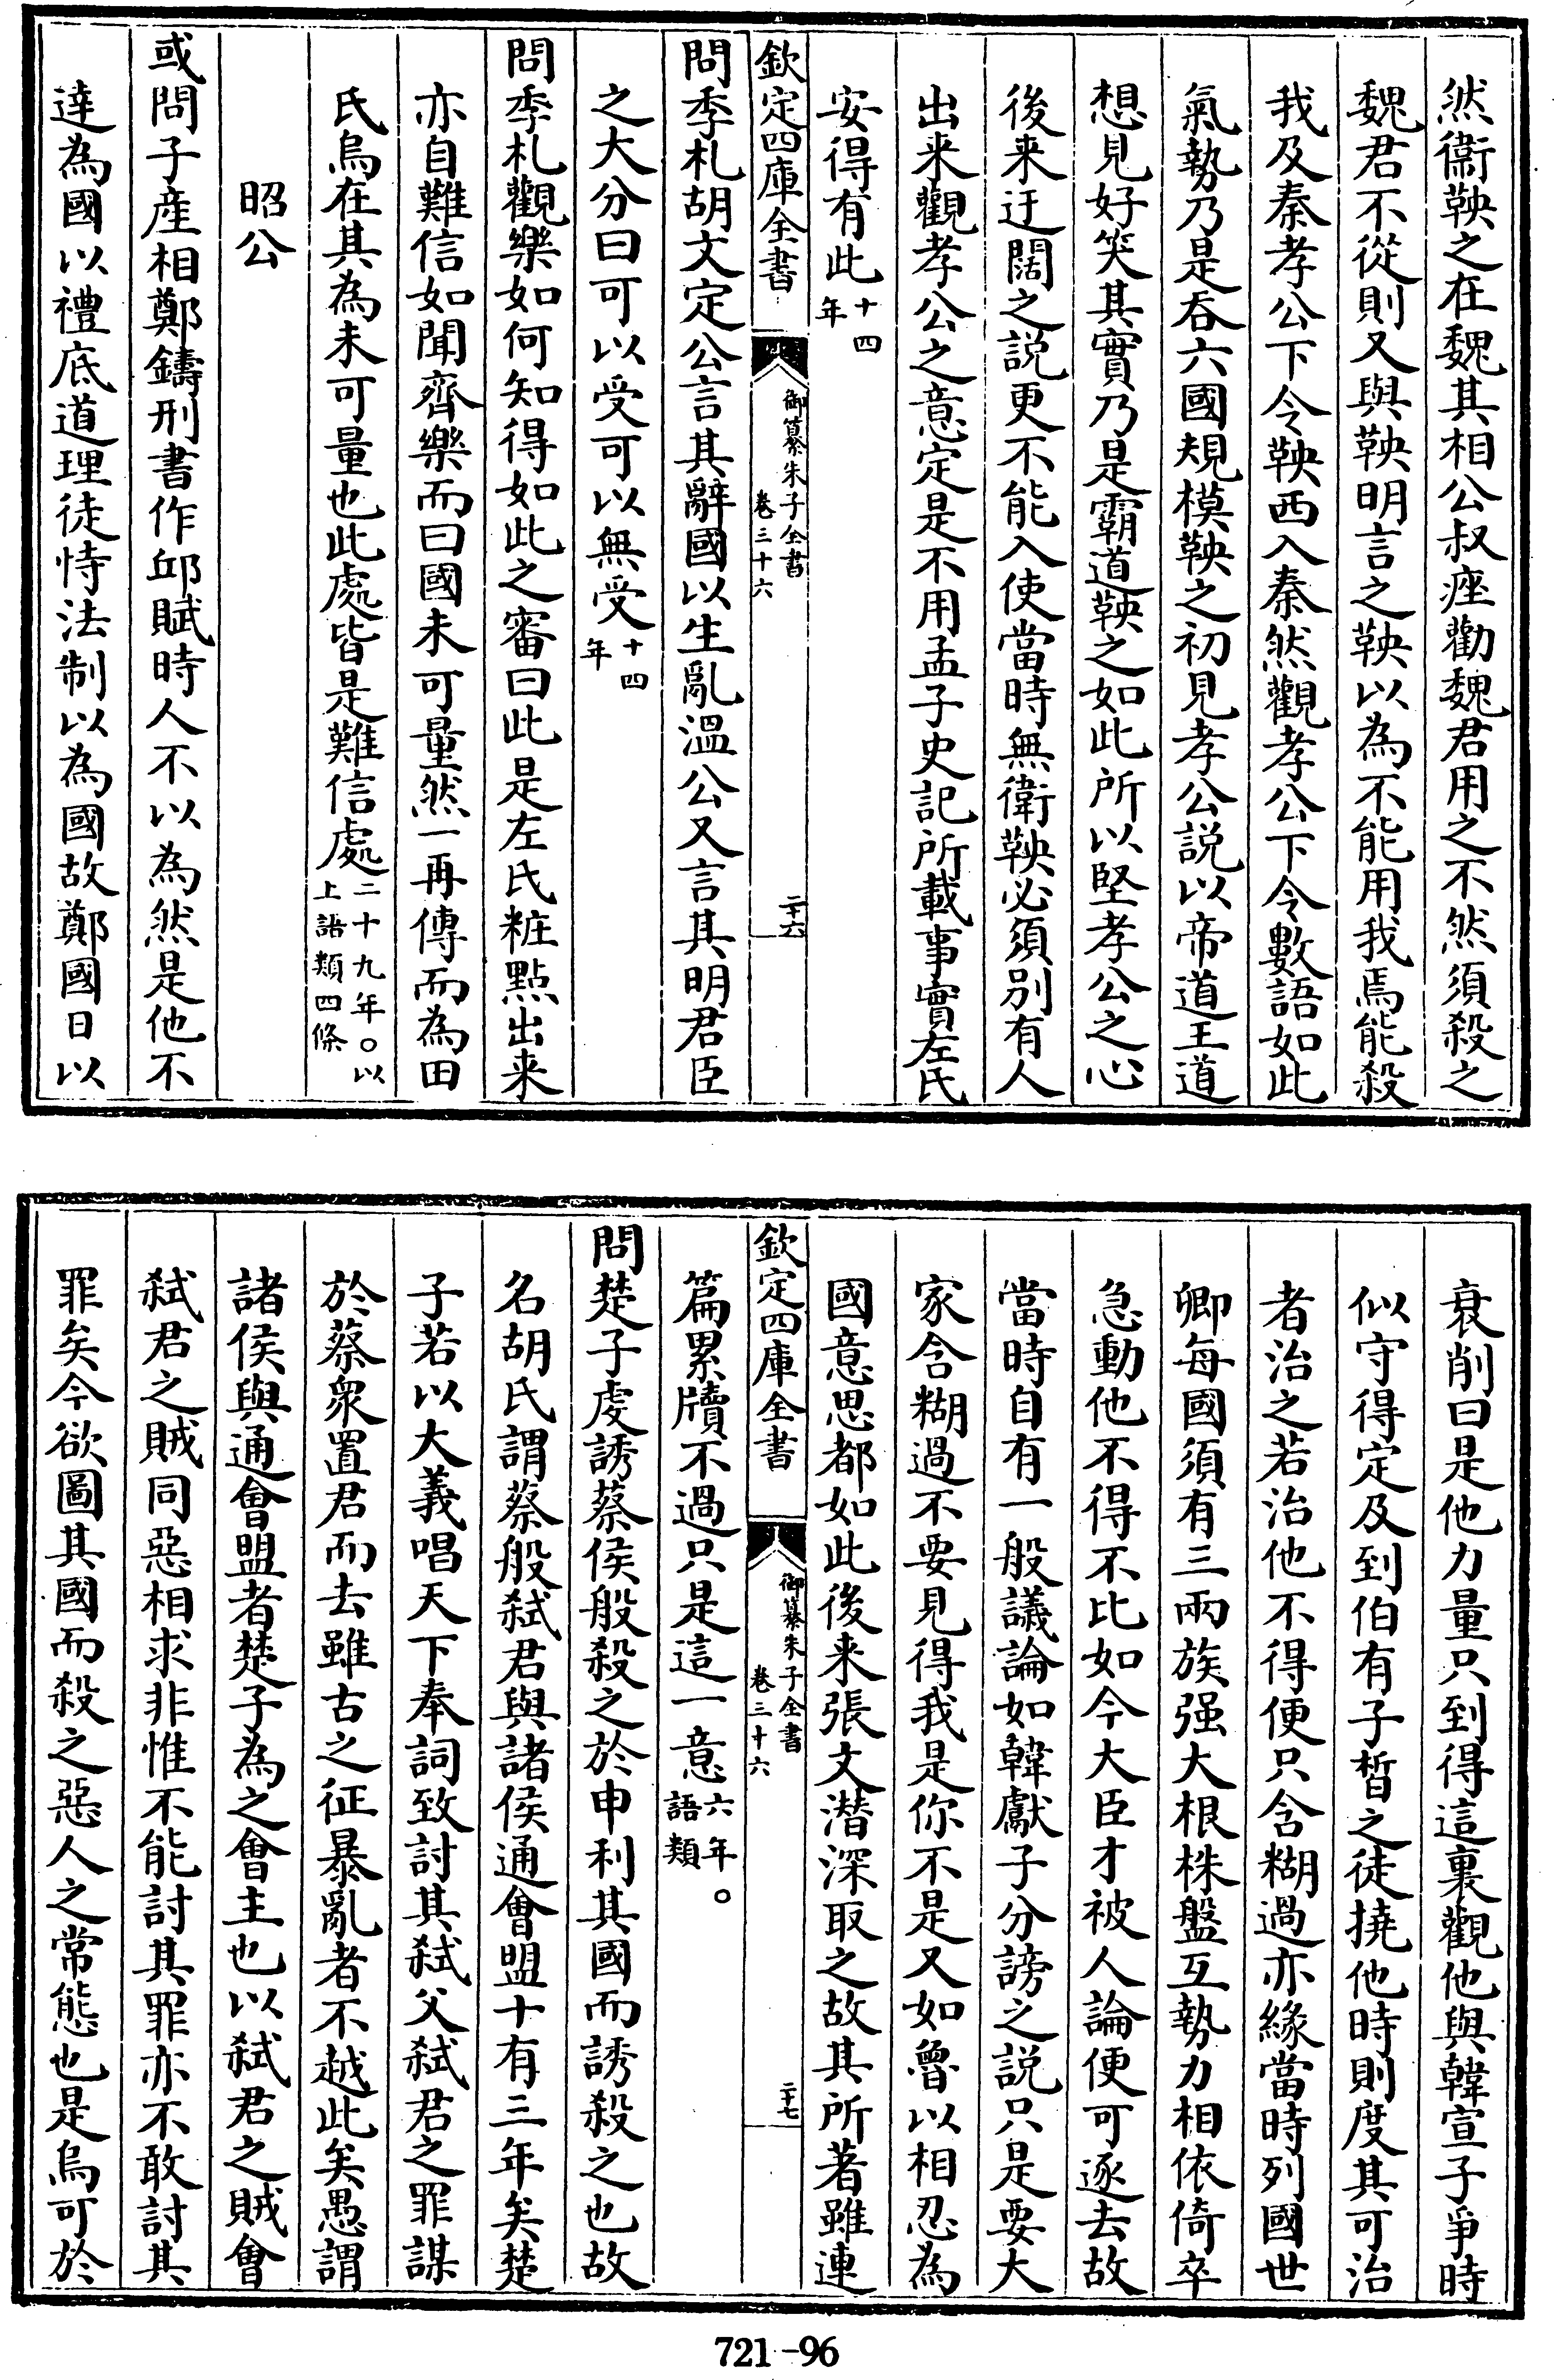 然衞鞅之在魏其相公叔痤勸魏君用之不然須殺之
魏君不從則又與鞅明言之鞅以為不能用我焉能殺
我及秦孝公下令鞅西入秦然觀孝公下令數語如此
氣勢乃是吞六國規模鞅之初見孝公說以帝道王道
想見好笑其實乃是霸道鞅之如此所以堅孝公之心
後来迂闊之說更不能入使當時無衛鞅必須別有人
出来觀孝公之意定是不用孟子史記所載事實左氏
安得有此十四年
欽定四庫全書 御纂朱子全書 卷三十六 二十六
問季札胡文定公言其辭國以生亂溫公又言其明君臣
之大分曰可以受可以無受十四年
問季札觀樂如何知得如此之審曰此是左氏粧點出来
亦自難信如聞齊樂而曰國未可量然一再傳而為田
氏烏在其為未可量也此處皆是難信處二十九年○以上語類四條
昭公
或問子產相鄭鑄刑書作邱賦時人不以為然是他不
逹為國以禮底道理徒恃法制以為國故鄭國日以
衰削曰是他力量只到得這裏觀他與韓宣子爭時
似守得定及到伯有子晳之徒撓他時則度其可治
者治之若治他不得便只含糊過亦緣當時列國世
卿每國須有三兩族强大根株盤互勢力相依倚卒
急動他不得不比如今大臣才被人論便可逐去故
當時自有一般議論如韓獻子分謗之說只是要大
家含糊過不要見得我是你不是又如魯以相忍為
國意思都如此後来張文潛深取之故其所著雖連
欽定四庫全書 御纂朱子全書 卷三十六 二十七
篇累牘不過只是這一意六年○語類
問楚子虔誘蔡侯般殺之於申利其國而誘殺之也故
名胡氏謂蔡般弑君與諸侯通會盟十有三年矣楚
子若以大義唱天下奉詞致討其弑父弑君之罪謀
於蔡衆置君而去雖古之征暴亂者不越此矣愚謂
諸侯與通會盟者楚子為之會主也以弑君之賊會
弑君之賊同惡相求非惟不能討其罪亦不敢討其
罪矣今欲圖其國而殺之惡人之常態也是烏可於
721-96